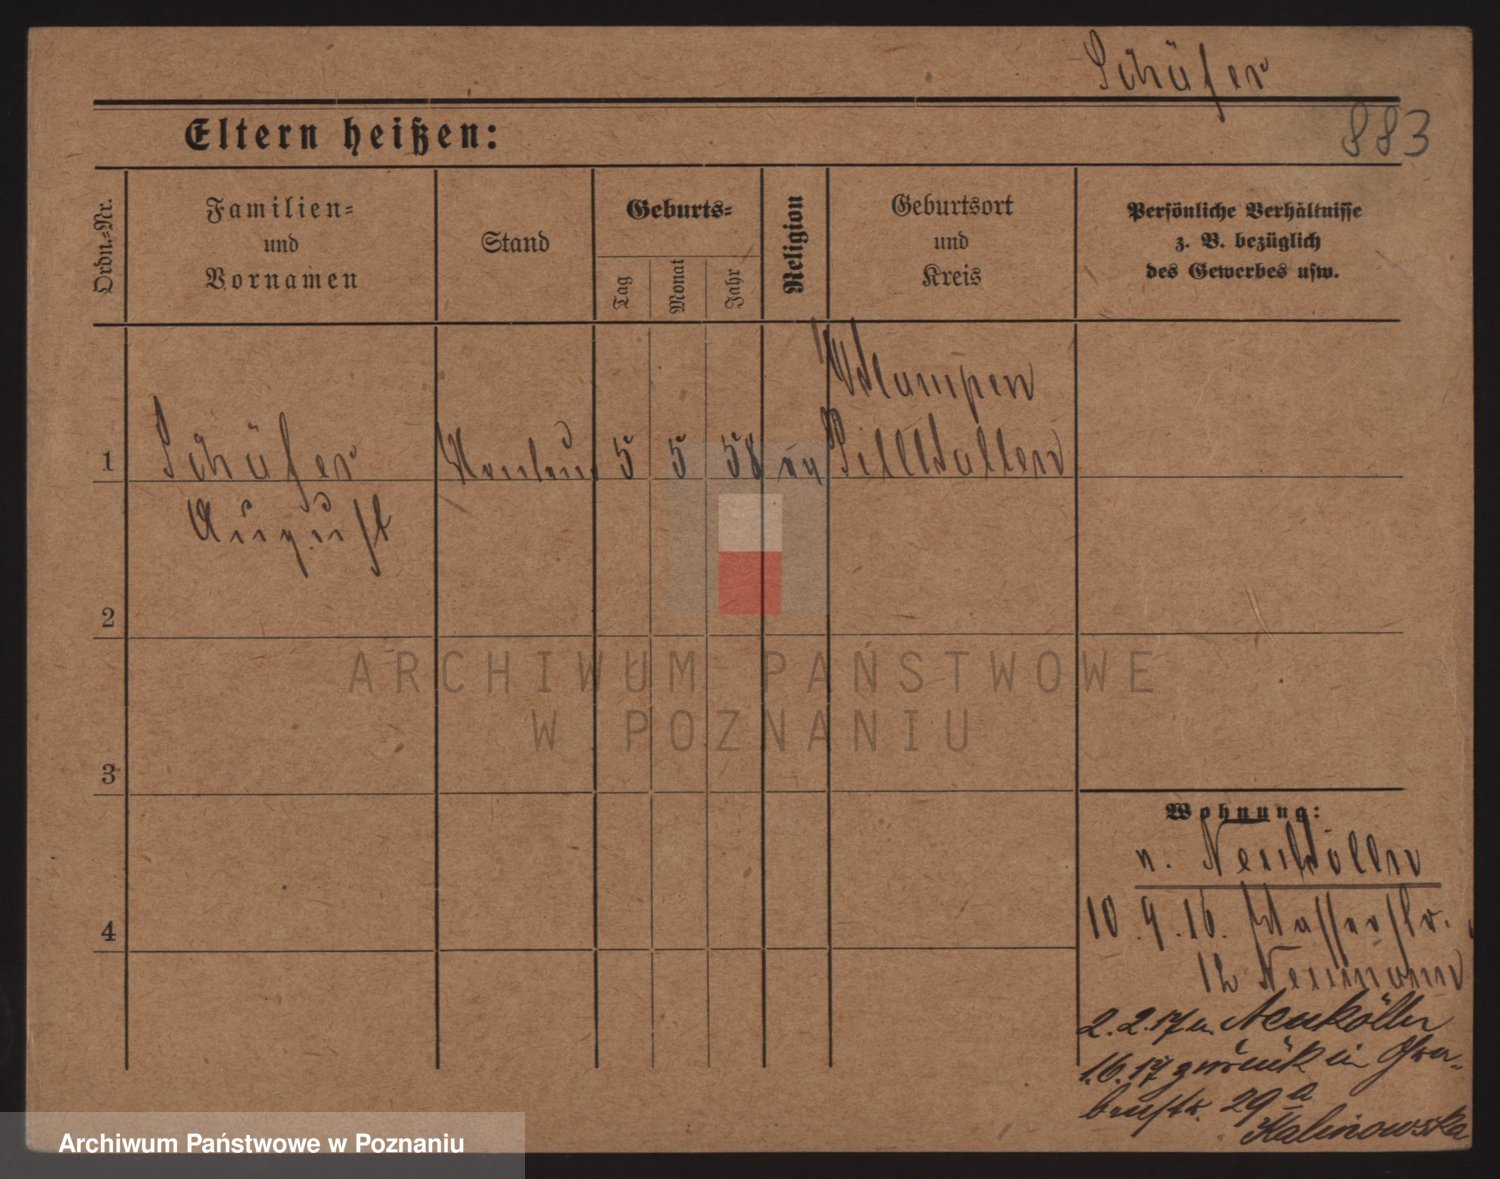 Schäfer
883
Eltern heißen:
Ordn.-Nr.
Familien-
und
Vornamen
Stand
Geburts-
Tag
Monat
Jahr
Religion
Geburtsort
und
Kreis
Persönliche Verhältnisse
z. B. bezüglich
des Gewerbes usw.
1
Schäfer
August
5
5
58
ev
Pillkallen
2
3
4
Wohnung:
n. Neukölln
10.9.16. Wasserstr.
12 Neumann
2.2.17 n. Neukölln
1.6.17 zurück in
29a
Kalinowska
ARCHIWUM PAŃSTWOWE
W POZNANIU
Archiwum Państwowe w Poznaniu